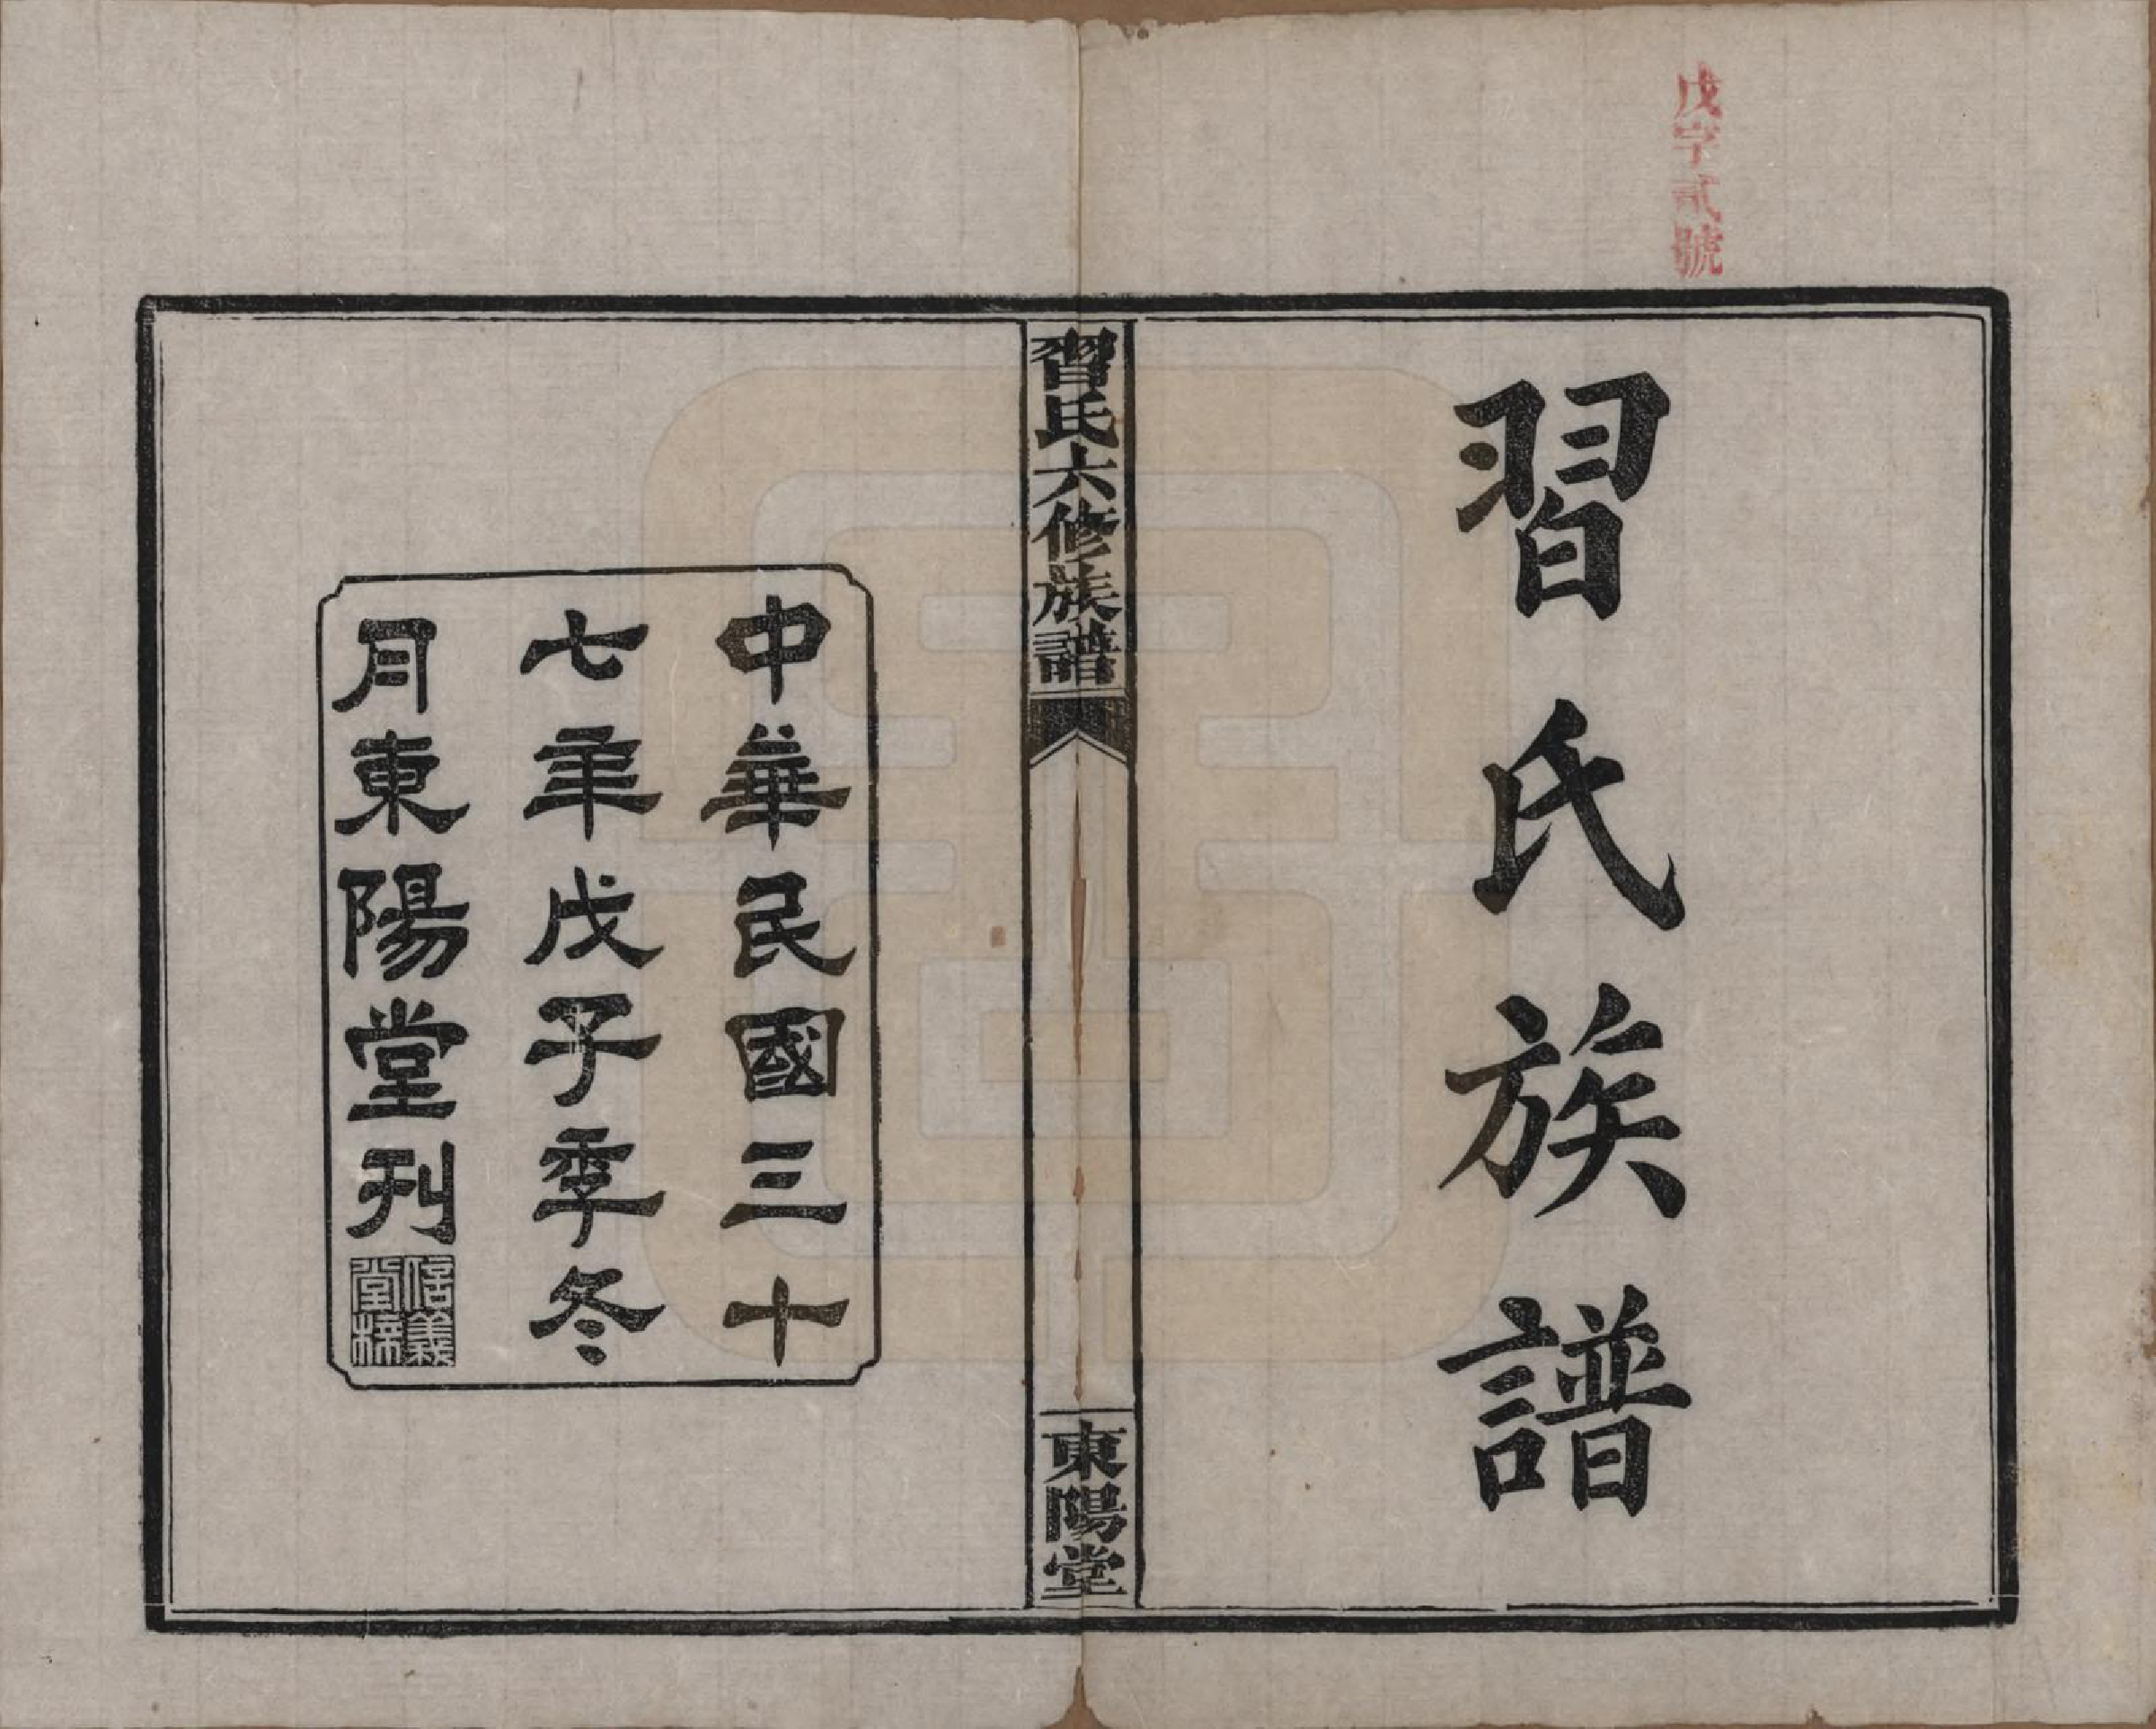 戊字貳號
習氏族譜
習氏六修族譜
東陽堂
中華民國三十
七年戊子季冬
月東陽堂刊
信義
堂梓